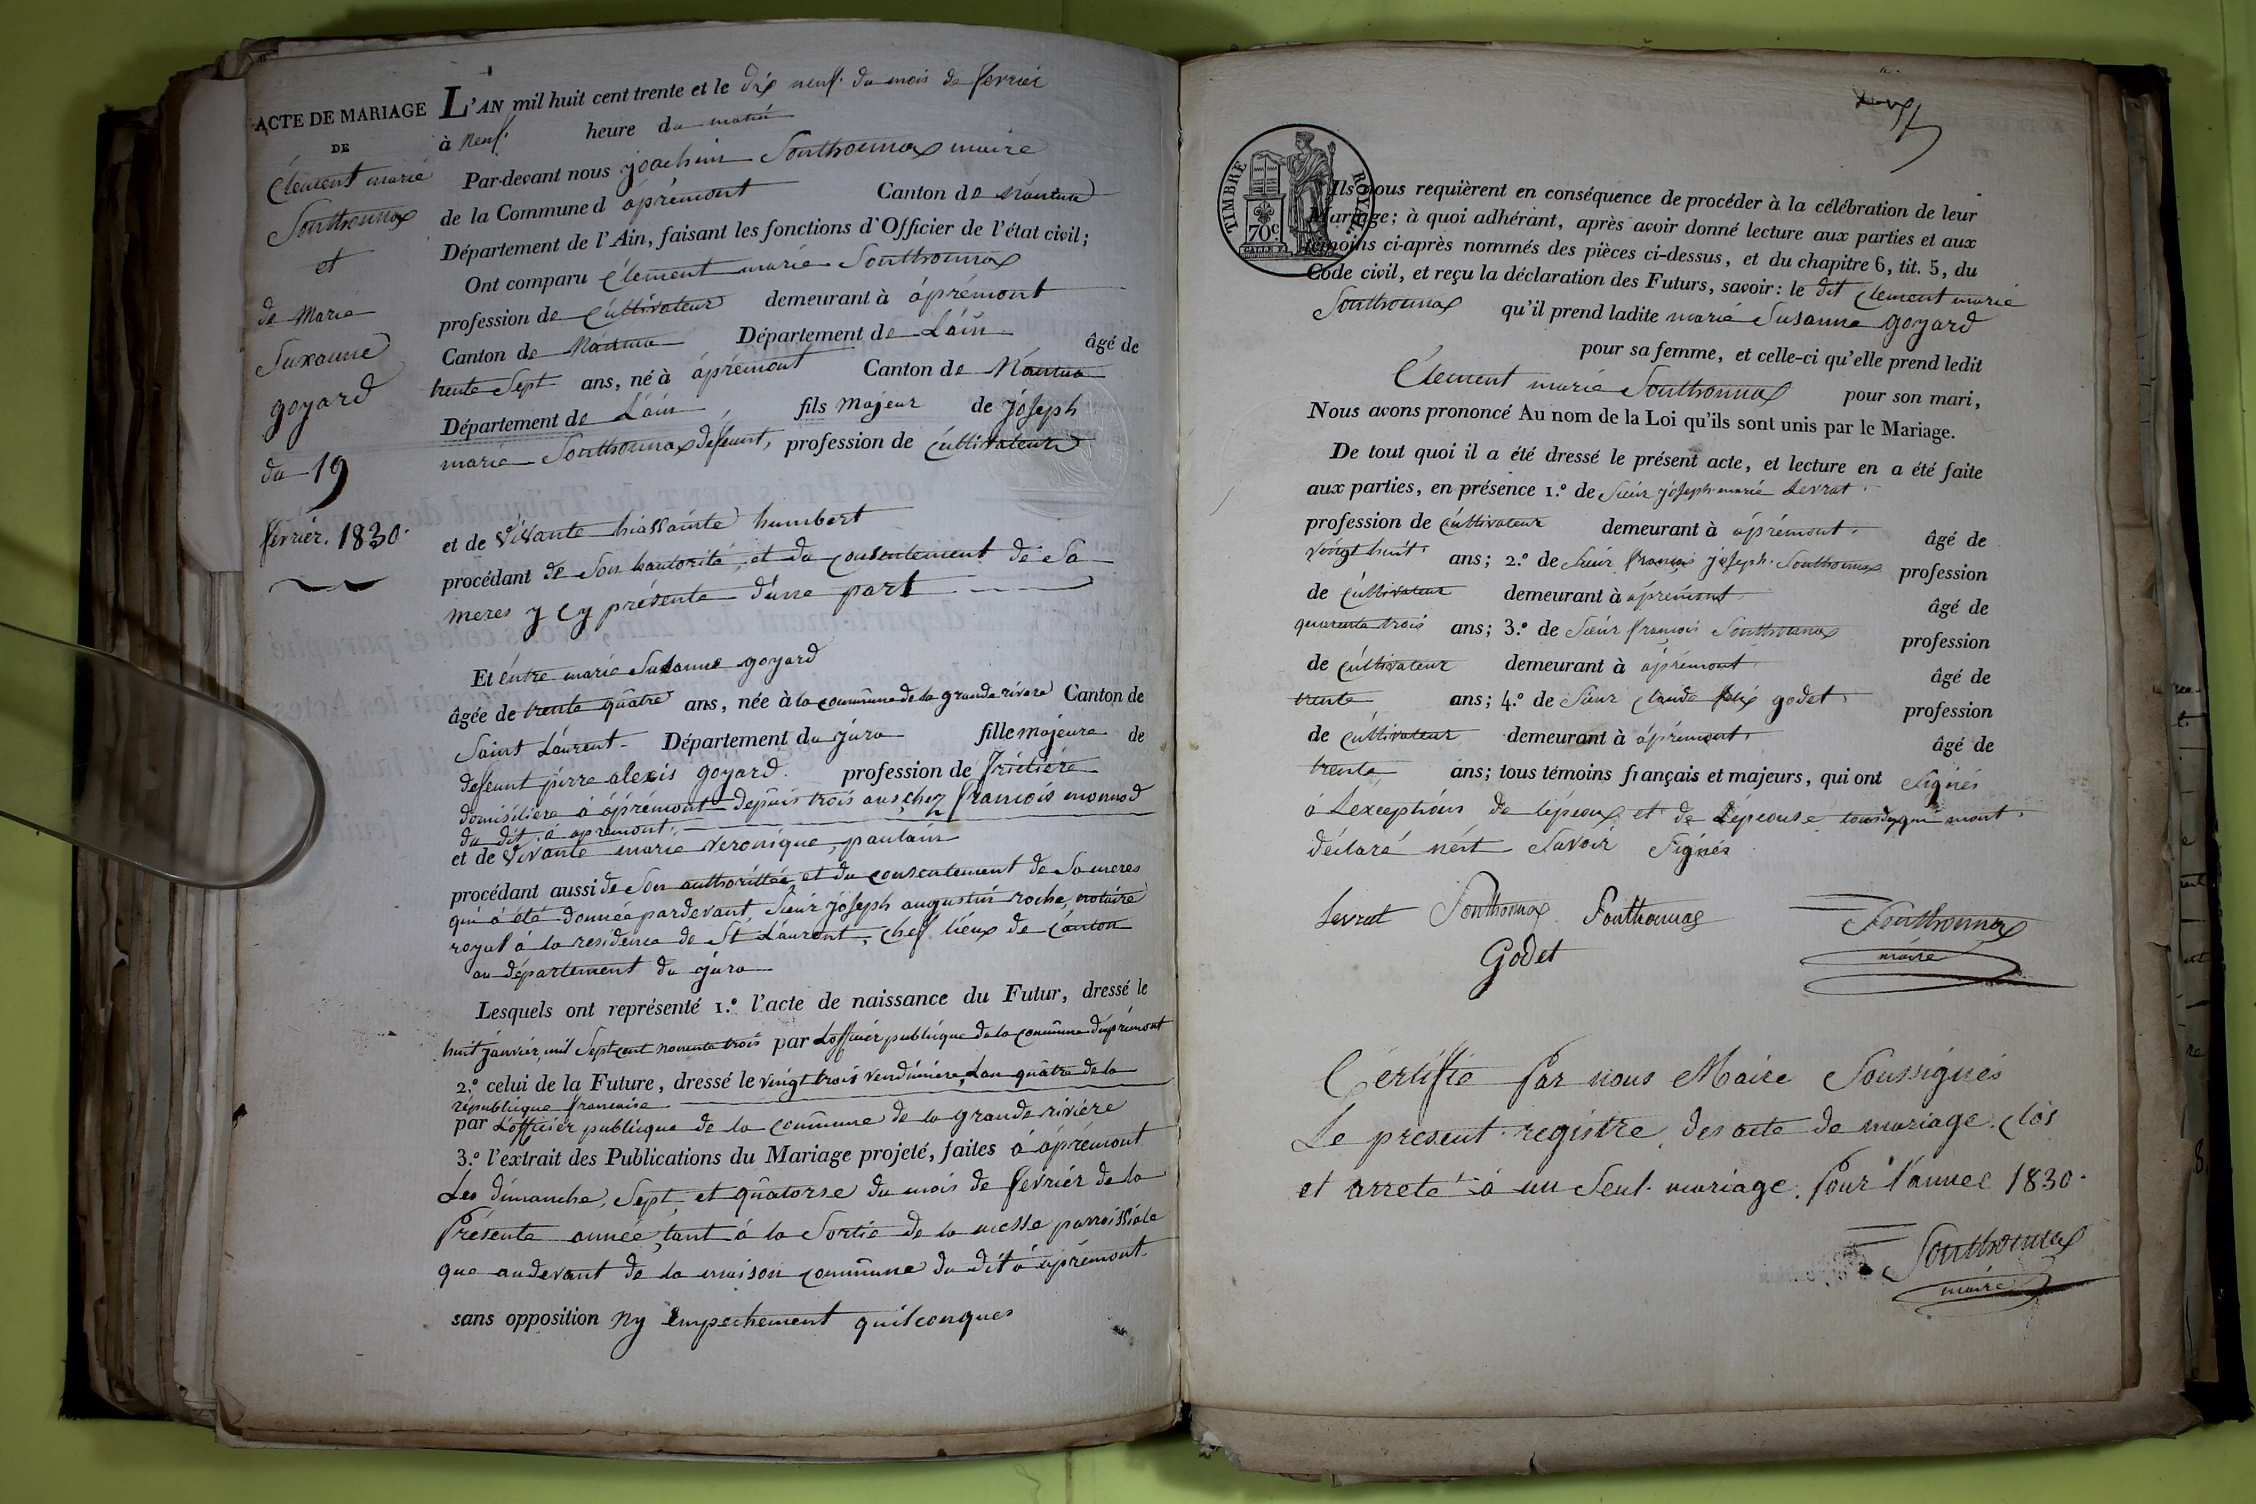 ACTE DE MARIAGE
DE
Clément marié
Sonthonnax
et
de Marie
Suxanne
goyard
du 19
février. 1830.
L'AN mil huit cent trente et le dix neuf. du mois de fevrier
à Neuf. heure du matin
Par-devant nous joachim Sonthonnax maire
de la Commune d'aprémont Canton de Nantua
Département de l'Ain, faisant les fonctions d'Officier de l'état civil;
Ont comparu Clement marie Sonthonnax
profession de Cultivateur demeurant à aprémont
Canton de Nantua Département de L'ain âgé de
trente Sept ans, né à aprémont Canton de Nantua
Département de L'ain fils Majeur de joseph
marie Sonthonnax defeunt, profession de Cultivateur
et de Vivante hiassainte humbert
procédant de Son hautorité, et du consentement de Sa
meres y cy présente d'une part
Et éntre marie Susanne goyard
âgée de trente quâtre ans, née à la commûne de la grande rivere Canton de
Saint Laurent Département du jura fille majeure de
defeunt pirre alexis goyard. profession de fruitière
domisiliere à aprémont depuis trois ans, chez francois monnod
du dit à apremont.
et de Vivante marie veronique, paulain
procédant aussi de Son authorittée et du consentement de Sa meres
qui à été donnée pardevant Sieur joseph augustin roche, notaire
royal à la residence de St Laurent, chef lieux de Canton
au département du jura
Lesquels ont représenté 1.º l'acte de naissance du Futur, dressé le
huit janvier, mil Sept cent nonente trois par Lofficier publique de la commûne d'aprémont
2.º celui de la Future, dressé le vingt trois vendimiere, Lan quâtre de la
république francaise
par Lofficier publique de la commune de la grande riviére
3.º l'extrait des Publications du Mariage projeté, faites à aprémont
Les dimanche, Sept, et quâtorse du mois de fevriér de la
Présente année, tant à la Sortie de la messe parroissiale
que audevant de la maison commûne du dit à aprémont.
sans opposition ny empechement quilconques
neuf
TIMBRE ROYAL
70c.
Ils nous requièrent en conséquence de procéder à la célébration de leur
Mariage; à quoi adhérant, après avoir donné lecture aux parties et aux
témoins ci-après nommés des pièces ci-dessus, et du chapitre 6, tit. 5, du
Code civil, et reçu la déclaration des Futurs, savoir: le dit Clement marie
Sonthonnax qu'il prend ladite marie Susanne goyard
pour sa femme, et celle-ci qu'elle prend ledit
Clement marie Sonthonnax pour son mari,
Nous avons prononcé Au nom de la Loi qu'ils sont unis par le Mariage.
De tout quoi il a été dressé le présent acte, et lecture en a été faite
aux parties, en présence 1.º de Sieur joseph marie Levrat.
profession de cultivateur demeurant à aprémont. âgé de
vingt huit ans; 2.º de Sieur françois joseph. Sonthonnax profession
de cultivateur demeurant à aprémont. âgé de
quarente trois ans; 3.º de Sieur françois Sonthonnax profession
de cultivateur demeurant à aprémont. âgé de
trente ans; 4.º de Sieur claude felix godet. profession
de cultivateur demeurant à aprémont. âgé de
trente ans; tous témoins français et majeurs, qui ont Signés
à Lexceptions de lépeoux et de Lépeouse mont.
déclaré nért Savoir Signés
Levrat Sonthonnax Sonthonnax Sonthonnax
Godet maire
Certiffié par nous Maire Soussignés
Le present registre des acte de mariage. clos
et arreté à un Seul. mariage. pour l'annee 1830.
Sonthonnax
maire